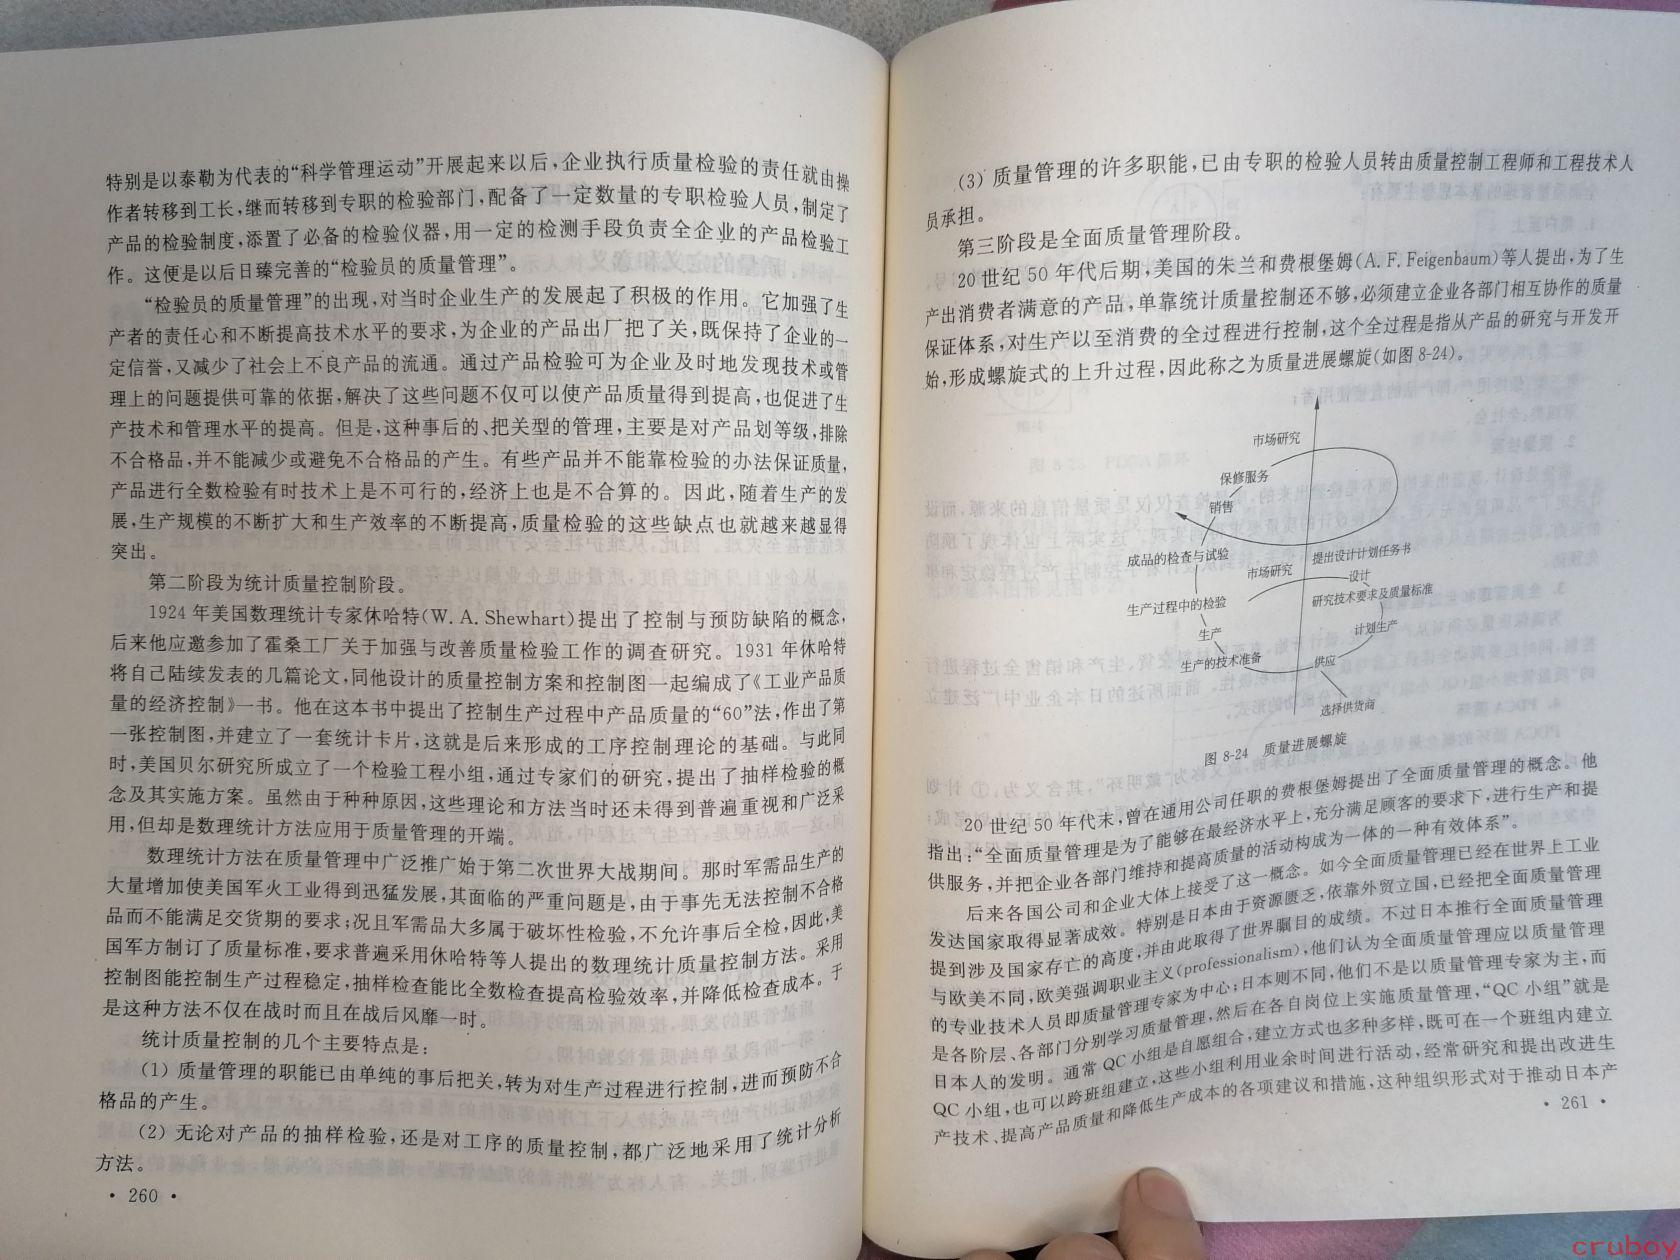 特别是以泰勒为代表的“科学管理运动”开展起来以后,企业执行质量检验的责任就由操
作者转移到工长,继而转移到专职的检验部门,配备了一定数量的专职检验人员,制定了
产品的检验制度,添置了必备的检验仪器,用一定的检测手段负责全企业的产品检验工
作。这便是以后日臻完善的“检验员的质量管理”。
“检验员的质量管理”的出现,对当时企业生产的发展起了积极的作用。它加强了生
产者的责任心和不断提高技术水平的要求,为企业的产品出厂把了关,既保持了企业的一
定信誉,又减少了社会上不良产品的流通。通过产品检验可为企业及时地发现技术或管
理上的问题提供可靠的依据,解决了这些问题不仅可以使产品质量得到提高,也促进了生
产技术和管理水平的提高。但是,这种事后的、把关型的管理,主要是对产品划等级,排除
不合格品,并不能减少或避免不合格品的产生。有些产品并不能靠检验的办法保证质量,
产品进行全数检验有时技术上是不可行的,经济上也是不合算的。因此,随着生产的发
展,生产规模的不断扩大和生产效率的不断提高,质量检验的这些缺点也就越来越显得
突出。
第二阶段为统计质量控制阶段。
1924 年美国数理统计专家休哈特(W. A. Shewhart)提出了控制与预防缺陷的概念,
后来他应邀参加了霍桑工厂关于加强与改善质量检验工作的调查研究。1931 年休哈特
将自己陆续发表的几篇论文,同他设计的质量控制方案和控制图一起编成了《工业产品质
量的经济控制》一书。他在这本书中提出了控制生产过程中产品质量的“60”法,作出了第
一张控制图,并建立了一套统计卡片,这就是后来形成的工序控制理论的基础。与此同
时,美国贝尔研究所成立了一个检验工程小组,通过专家们的研究,提出了抽样检验的概
念及其实施方案。虽然由于种种原因,这些理论和方法当时还未得到普遍重视和广泛采
用,但却是数理统计方法应用于质量管理的开端。
数理统计方法在质量管理中广泛推广始于第二次世界大战期间。那时军需品生产的
大量增加使美国军火工业得到迅猛发展,其面临的严重问题是,由于事先无法控制不合格
品而不能满足交货期的要求;况且军需品大多属于破坏性检验,不允许事后全检,因此,美
国军方制订了质量标准,要求普遍采用休哈特等人提出的数理统计质量控制方法。采用
控制图能控制生产过程稳定,抽样检查能比全数检查提高检验效率,并降低检查成本。于
是这种方法不仅在战时而且在战后风靡一时。
统计质量控制的几个主要特点是:
(1) 质量管理的职能已由单纯的事后把关,转为对生产过程进行控制,进而预防不合
格品的产生。
(2) 无论对产品的抽样检验,还是对工序的质量控制,都广泛地采用了统计分析
方法。
• 260 •
(3) 质量管理的许多职能,已由专职的检验人员转由质量控制工程师和工程技术人
员承担。
第三阶段是全面质量管理阶段。
20 世纪 50 年代后期,美国的朱兰和费根堡姆(A. F. Feigenbaum)等人提出,为了生
产出消费者满意的产品,单靠统计质量控制还不够,必须建立企业各部门相互协作的质量
保证体系,对生产以至消费的全过程进行控制,这个全过程是指从产品的研究与开发开
始,形成螺旋式的上升过程,因此称之为质量进展螺旋(如图 8-24)。
市场研究
保修服务
销售
成品的检查与试验
提出设计计划任务书
市场研究
设计
研究技术要求及质量标准
生产过程中的检验
计划生产
生产
生产的技术准备
供应
选择供货商
图 8-24 质量进展螺旋
20 世纪 50 年代末,曾在通用公司任职的费根堡姆提出了全面质量管理的概念。他
指出:“全面质量管理是为了能够在最经济水平上,充分满足顾客的要求下,进行生产和提
供服务,并把企业各部门维持和提高质量的活动构成为一体的一种有效体系”。
后来各国公司和企业大体上接受了这一概念。如今全面质量管理已经在世界上工业
发达国家取得显著成效。特别是日本由于资源匮乏,依靠外贸立国,已经把全面质量管理
提到涉及国家存亡的高度,并由此取得了世界瞩目的成绩。不过日本推行全面质量管理
与欧美不同,欧美强调职业主义(professionalism),他们认为全面质量管理应以质量管理
的专业技术人员即质量管理专家为中心;日本则不同,他们不是以质量管理专家为主,而
是各阶层、各部门分别学习质量管理,然后在各自岗位上实施质量管理,“QC 小组”就是
日本人的发明。通常 QC 小组是自愿组合,建立方式也多种多样,既可在一个班组内建立
QC 小组,也可以跨班组建立,这些小组利用业余时间进行活动,经常研究和提出改进生
产技术、提高产品质量和降低生产成本的各项建议和措施,这种组织形式对于推动日本产
• 261 •
cruboy